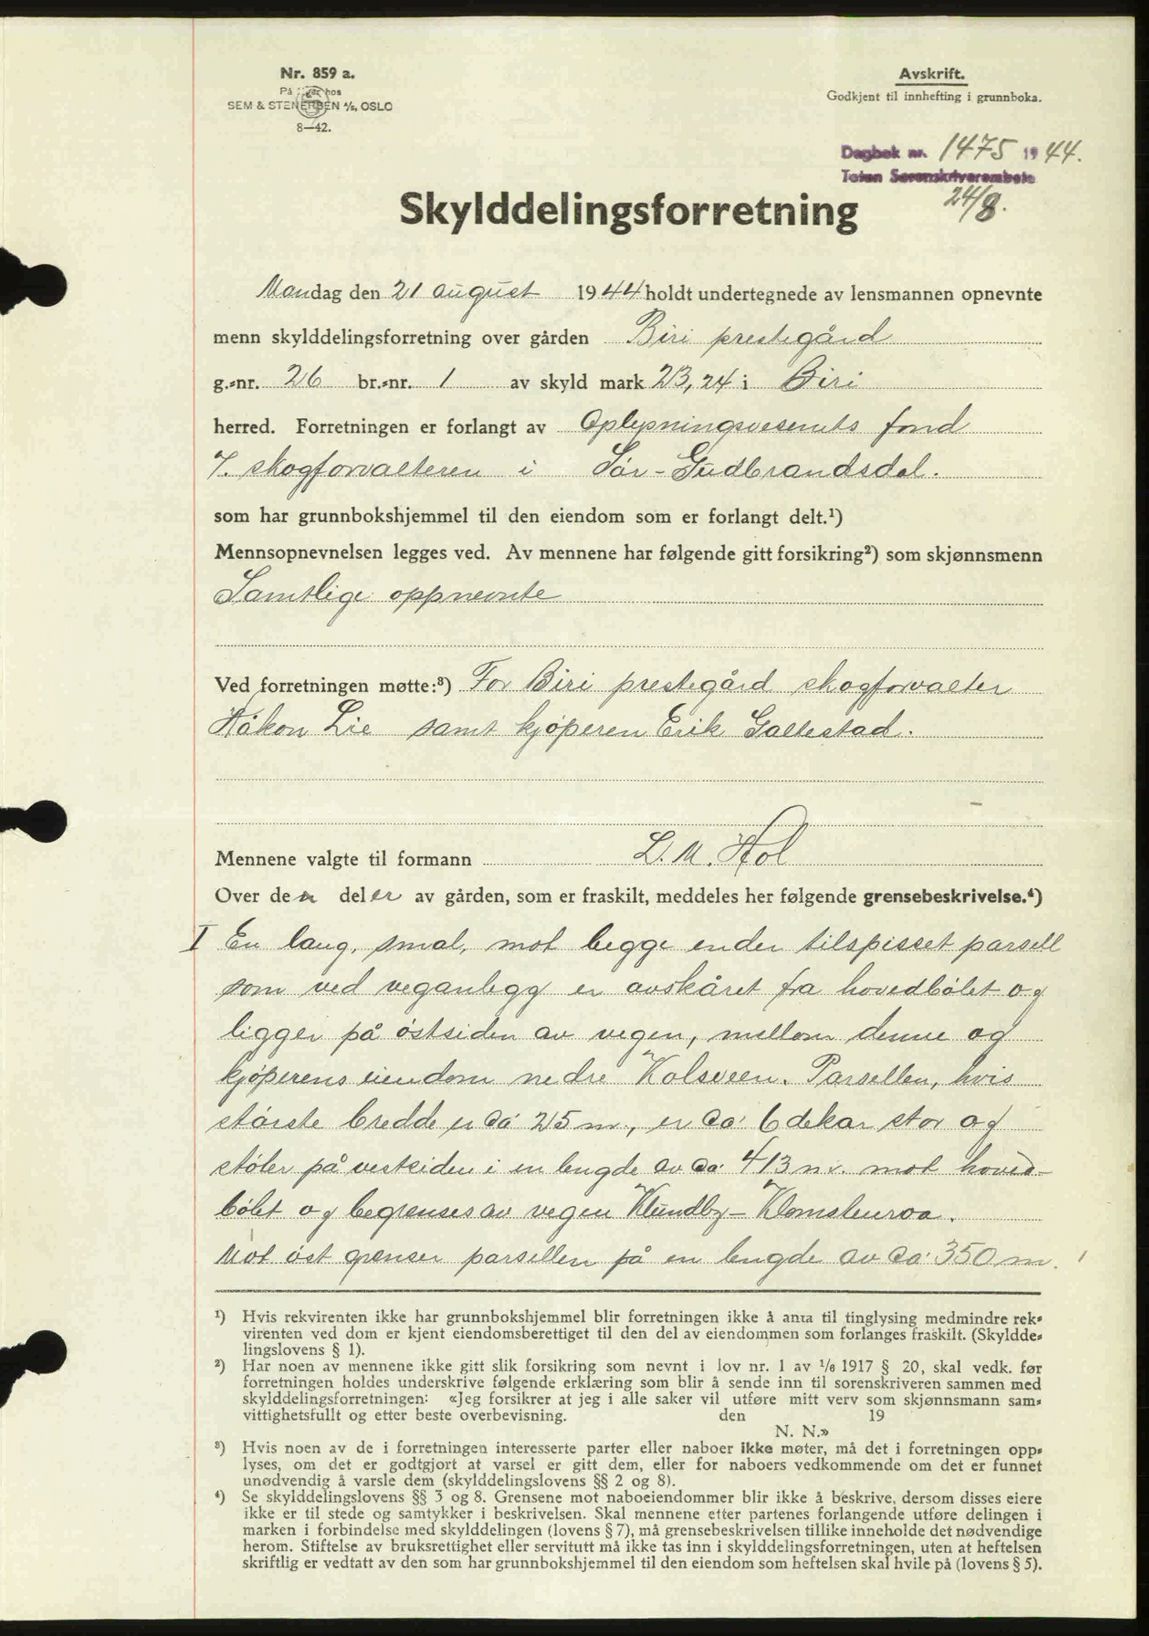 Nr. 859 a.
På lager hos
SEM & STENERSEN A/S, OSLO
8—42.
Avskrift.
Godkjent til innhefting i grunnboka.
Dagbok nr. 1475 1944.
Toten Sorenskriverembete
24/8.
Skylddelingsforretning
Mandag den 21 august 1944 holdt undertegnede av lensmannen opnevnte
menn skylddelingsforretning over gården Biri prestegård
g.-nr. 26 br.-nr. 1 av skyld mark 23,24 i Biri
herred. Forretningen er forlangt av Oplysningsvesenets fond
v. skogforvalteren i Sør-Gudbrandsdal.
som har grunnbokshjemmel til den eiendom som er forlangt delt.¹)
Mennsopnevnelsen legges ved. Av mennene har følgende gitt forsikring²) som skjønnsmenn
Samtlige oppnevnte
Ved forretningen møtte:³) For Biri prestegård skogforvalter
Håkon Lie samt kjøperen Erik Galtestad.
Mennene valgte til formann L. M. Hol
Over den deler av gården, som er fraskilt, meddeles her følgende grensebeskrivelse.⁴)
I En lang, smal, mot begge ender tilspisset parsell
som ved veganlegg er avskåret fra hovedbølet og
ligger på østsiden av vegen, mellom denne og
kjøperens eiendom nedre Kolsveen. Parsellen, hvis
største bredde er ca 25 m., er ca. 6 dekar stor og
støter på vestsiden i en lengde av ca. 413 m. mot hoved-
bølet og begrenses av vegen Klundby - Klomsteinroa.
Mot øst grenser parsellen på en lengde av ca. 350 m.
¹) Hvis rekvirenten ikke har grunnbokshjemmel blir forretningen ikke å anta til tinglysing medmindre rek-
virenten ved dom er kjent eiendomsberettiget til den del av eiendommen som forlanges fraskilt. (Skyldde-
lingslovens § 1).
²) Har noen av mennene ikke gitt slik forsikring som nevnt i lov nr. 1 av 1/6 1917 § 20, skal vedk. før
forretningen holdes underskrive følgende erklæring som blir å sende inn til sorenskriveren sammen med
skylddelingsforretningen: «Jeg forsikrer at jeg i alle saker vil utføre mitt verv som skjønnsmann sam-
vittighetsfullt og etter beste overbevisning. den 19
N. N.»
³) Hvis noen av de i forretningen interesserte parter eller naboer ikke møter, må det i forretningen opp-
lyses, om det er godtgjort at varsel er gitt dem, eller for naboers vedkommende om det er funnet
unødvendig å varsle dem (skylddelingslovens §§ 2 og 8).
⁴) Se skylddelingslovens §§ 3 og 8. Grensene mot naboeiendommer blir ikke å beskrive, dersom disses eiere
ikke er til stede og samtykker i beskrivelsen. Skal mennene etter partenes forlangende utføre delingen i
marken i forbindelse med skylddelingen (lovens § 7), må grensebeskrivelsen tillike inneholde det nødvendige
herom. Stiftelse av bruksrettighet eller servitutt må ikke tas inn i skylddelingsforretningen, uten at heftelsen
skriftlig er vedtatt av den som har grunnbokshjemmel til den eiendom som heftelsen skal hvile på (lovens § 5).